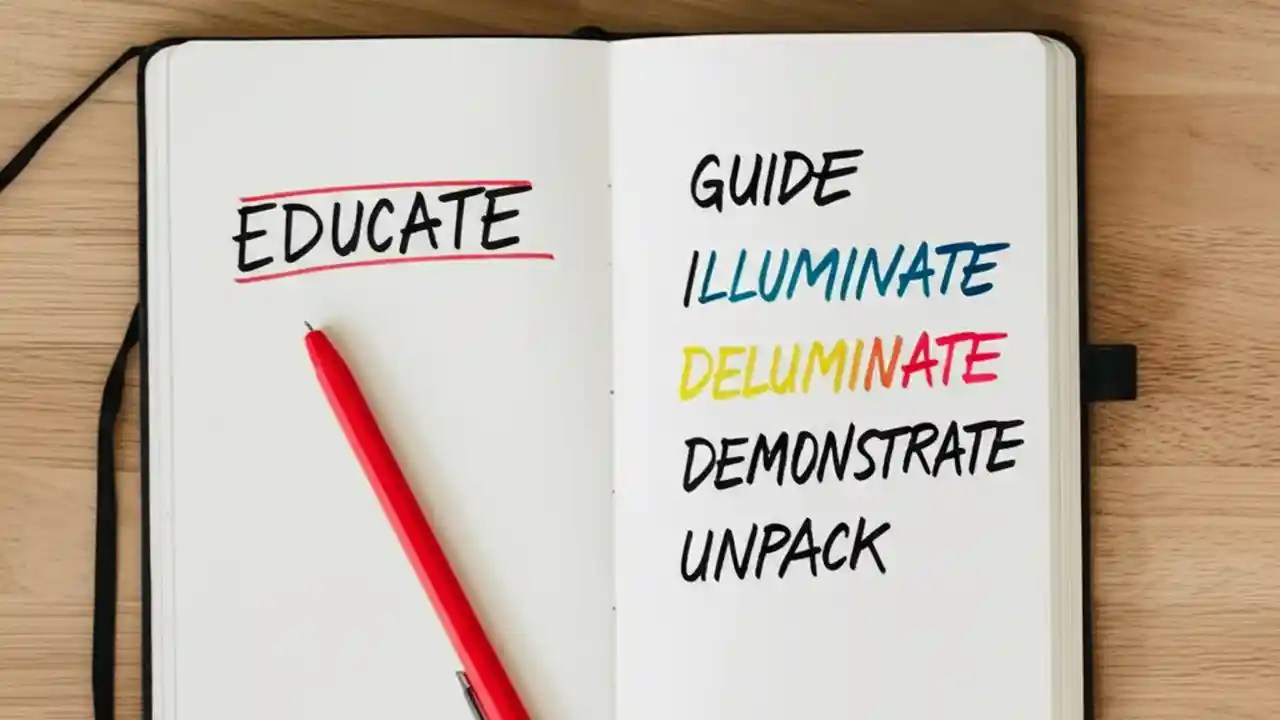 EDUCATE
GUIDE
ILLUMINATE
DELUMINATE
DEMONSTRATE
UNPACK